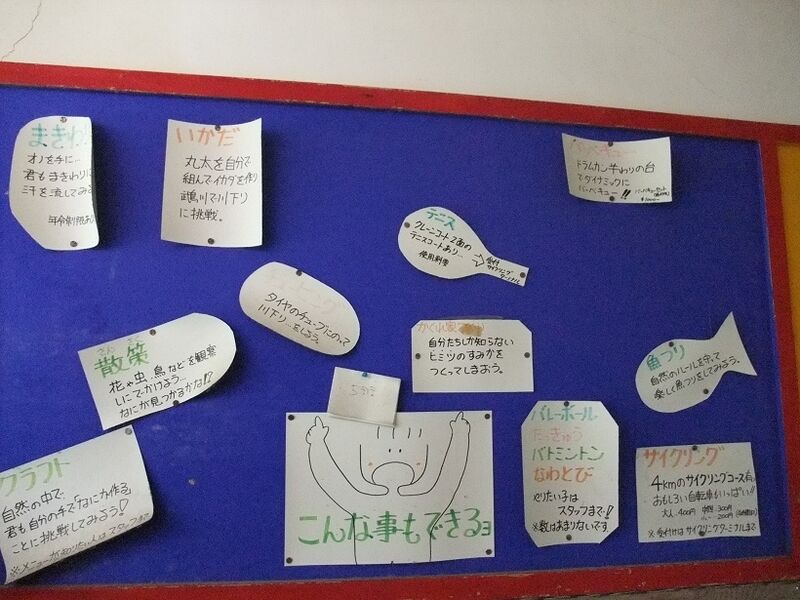 まきわり
オノを手に…
君もまきわりに
汗を流してみる
年令制限あり
いかだ
丸太を自分で
組んでイカダを作り
川で川下り
に挑戦。
バーベキュー
ドラムカン半わりの台
でダイナミックに
バーベキュー!!
テニス
クレーンコート2面の
テニスコートあり…
使用料要
→受付
サイクリング
ターミナル
タイヤのチューブにのって
川下り…をしよう。
さん さく
散策
花や虫、鳥などを観察
しにでかけよう…
なにが見つかるかな!?
かくれ家
自分たちしか知らない
ヒミツのすみかを
つくってしまおう。
魚つり
自然のルールを守って
楽しく魚つりをしてみよう。
クラフト
自然の中で
君も自分の手で「なにか作る」
ことに挑戦してみよう!
※メニューが知りたい人はスタッフまで
こんな事もできるヨ
バレーボール
たっきゅう
バトミントン
なわとび
やりたい子は
スタッフまで!!
※数はあまりないです。
サイクリング
4kmのサイクリングコース有。
おもしろい自転車もいっぱい!!
大人、400円 中学、300円
小… 200円
※受付けはサイクリングターミナルまで